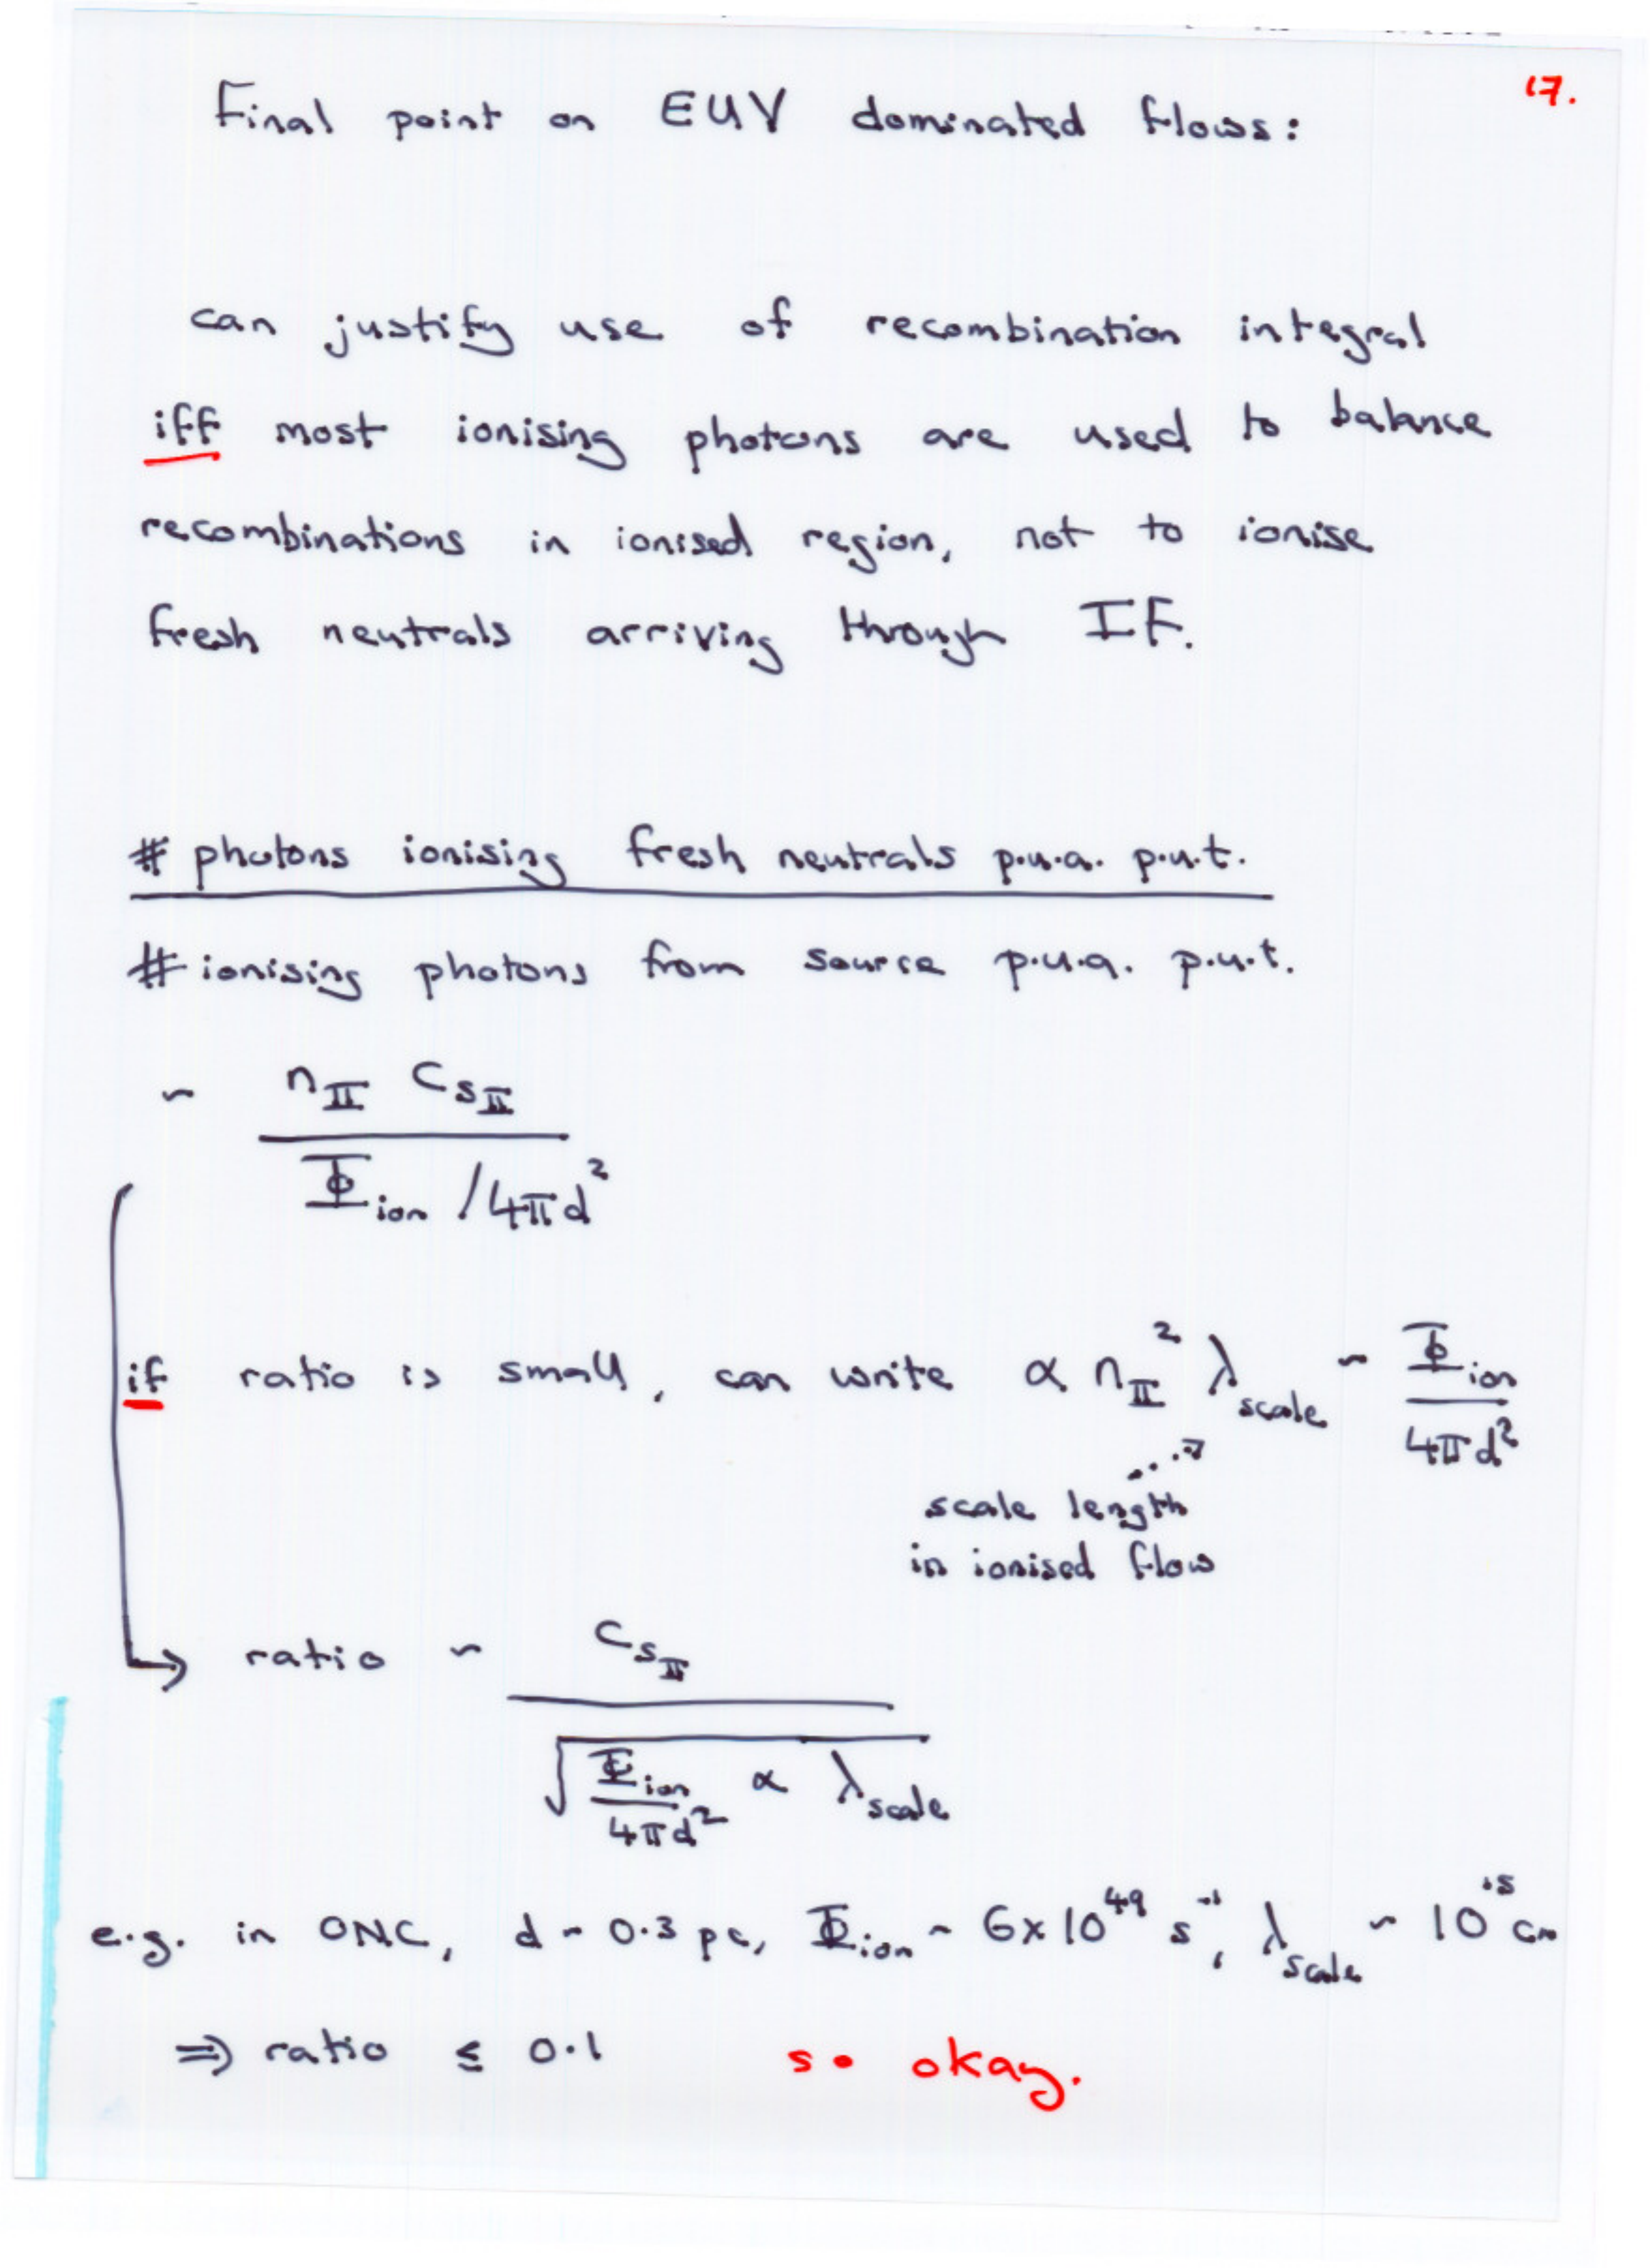 17.
Final point on EUV dominated flows:
can justify use of recombination integral
iff most ionising photons are used to balance
recombinations in ionised region, not to ionise
fresh neutrals arriving through IF.
# photons ionising fresh neutrals p.u.a. p.u.t.
# ionising photons from source p.u.a. p.u.t.
~ n_II c_sII
Φ_ion / 4πd²
if ratio is small, can write α n_II² λ_scale ~ Φ_ion / 4πd²
scale length
in ionised flow
→ ratio ~ c_sII
√ Φ_ion / 4πd² α λ_scale
e.g. in ONC, d ~ 0.3 pc, Φ_ion ~ 6×10⁴⁹ s⁻¹, λ_scale ~ 10¹⁵ cm
⇒ ratio ≤ 0.1 so okay.